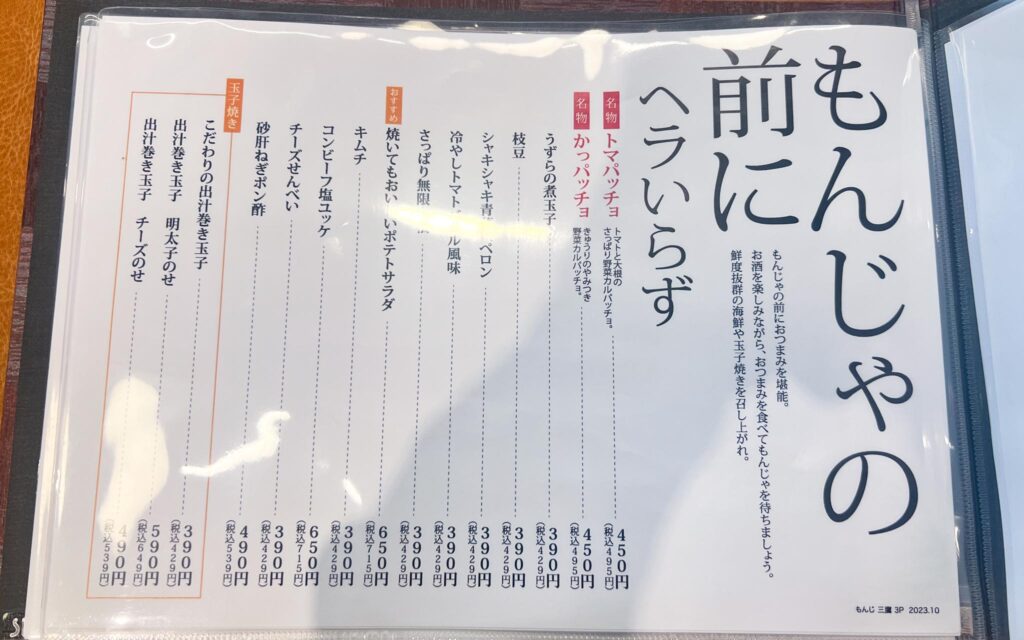 もんじゃの
前に
ヘラいらず
もんじゃの前におつまみを堪能。
お酒を楽しみながら、おつまみを食べてもんじゃを待ちましょう。
鮮度抜群の海鮮や玉子焼きを召し上がれ。
名物 トマパッチョ トマトと大根の
さっぱり野菜カルパッチョ。
450円
(税込495円)
名物 かっパッチョ きゅうりのやみつき
野菜カルパッチョ。
450円
(税込495円)
うずらの煮玉子 390円
(税込429円)
枝豆 390円
(税込429円)
シャキシャキ青 ペロン 390円
(税込429円)
冷やしトマト ル風味 390円
(税込429円)
さっぱり無限 390円
(税込429円)
おすすめ 焼いてもおいしいポテトサラダ 650円
(税込715円)
キムチ 390円
(税込429円)
コンビーフ塩ユッケ 650円
(税込715円)
チーズせんべい 390円
(税込429円)
砂肝ねぎポン酢 490円
(税込539円)
玉子焼き
こだわりの出汁巻き玉子 390円
(税込429円)
出汁巻き玉子 明太子のせ 590円
(税込649円)
出汁巻き玉子 チーズのせ 490円
(税込539円)
もんじ 三鷹 3P 2023.10